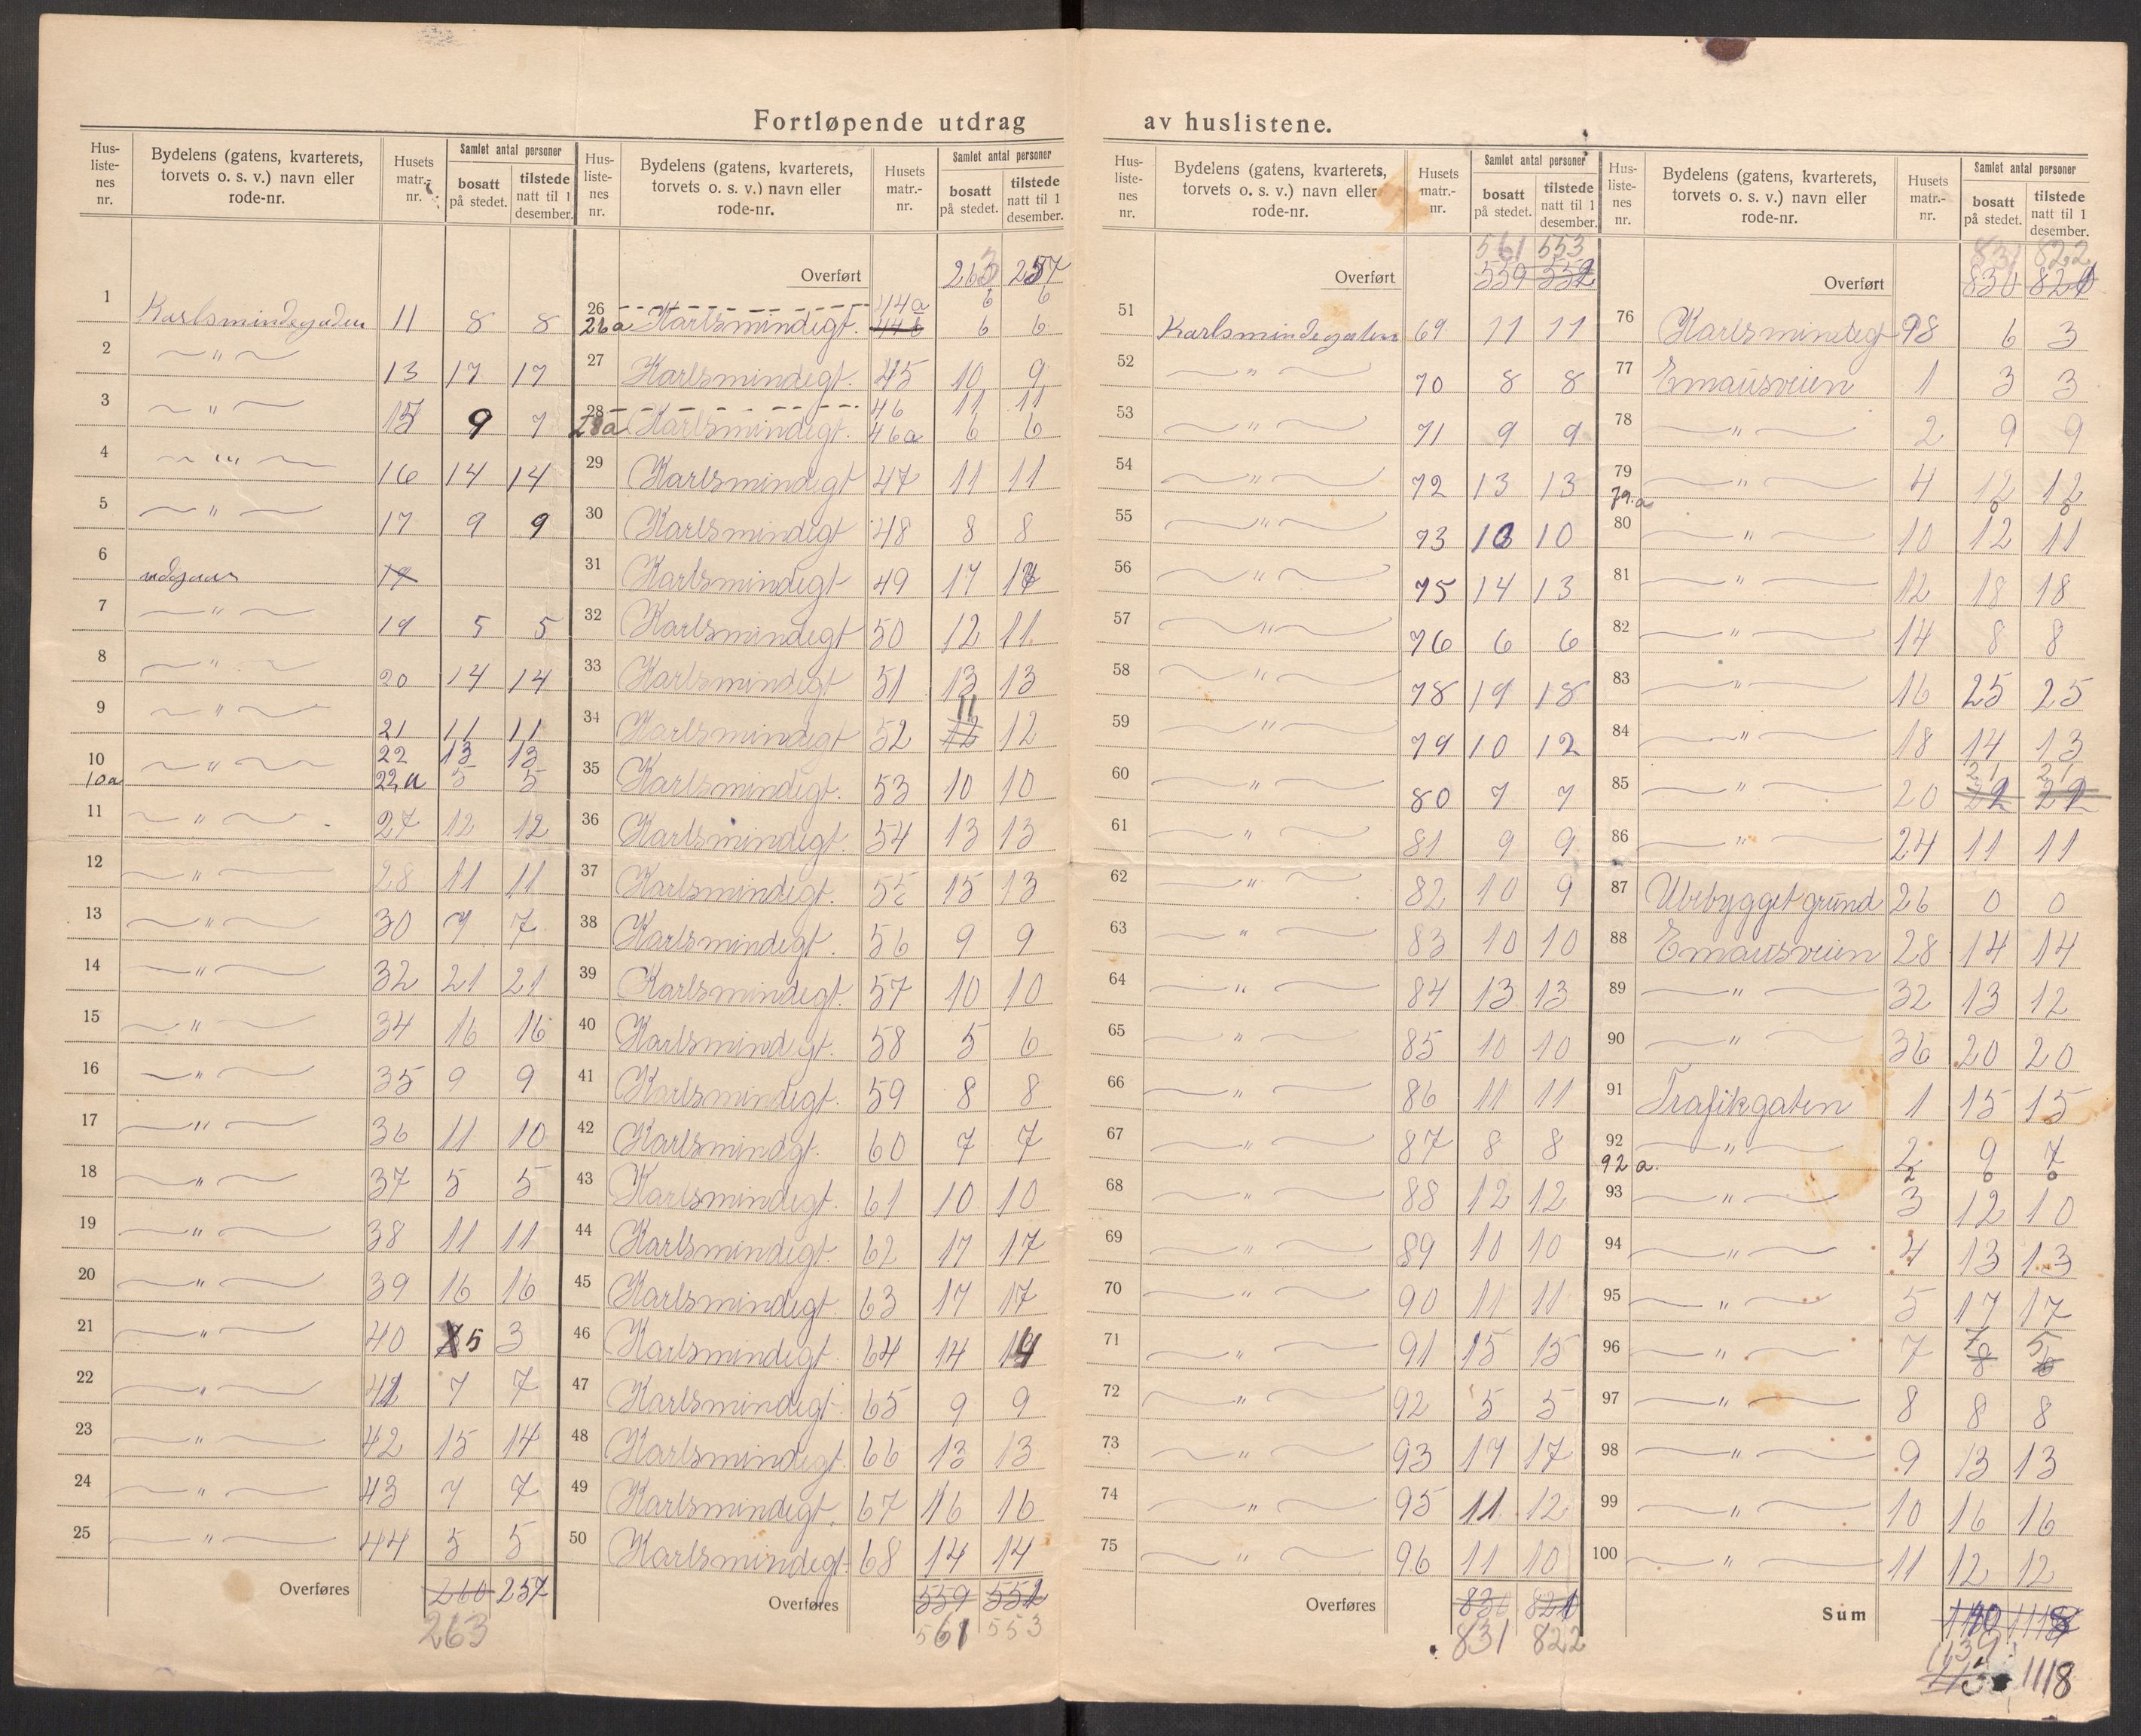 Fortløpende utdrag av huslistene.
Hus-liste-nes nr. | Bydelens (gatens, kvarterets, torvets o. s. v.) navn eller rode-nr. | Husets matr.-nr. | Samlet antal personer bosatt på stedet. | tilstede natt til 1 desember.
1 Karlsmindegaden 11 8 8
2 — " — 13 17 17
3 — " — 15 9 7
4 — " — 16 14 14
5 — " — 17 9 9
6 udgaar 19
7 — " — 19 5 5
8 — " — 20 14 14
9 — " — 21 11 11
10 — " — 22 13 13
10a 22a 5 5
11 — " — 27 12 12
12 — " — 28 11 11
13 — " — 30 7 7
14 — " — 32 21 21
15 — " — 34 16 16
16 — " — 35 9 9
17 — " — 36 11 10
18 — " — 37 5 5
19 — " — 38 11 11
20 — " — 39 16 16
21 — " — 40 5 3
22 — " — 41 7 7
23 — " — 42 15 14
24 — " — 43 7 7
25 — " — 44 5 5
Overføres 260 257
263
Hus-liste-nes nr. | Bydelens (gatens, kvarterets, torvets o. s. v.) navn eller rode-nr. | Husets matr.-nr. | Samlet antal personer bosatt på stedet. | tilstede natt til 1 desember.
Overført 263 257
26 44a 6 6
26a Karlsmindegt. 44b 6 6
27 Karlsmindegt. 45 10 9
28 46 11 11
28a Karlsmindegt. 46a 6 6
29 Karlsmindegt 47 11 11
30 Karlsmindegt 48 8 8
31 Karlsmindegt 49 17 17
32 Karlsmindegt 50 12 11
33 Karlsmindegt 51 13 13
34 Karlsmindegt 52 12 11 12
35 Karlsmindegt. 53 10 10
36 Karlsmindegt. 54 13 13
37 Karlsmindegt. 55 15 13
38 Karlsmindegt. 56 9 9
39 Karlsmindegt. 57 10 10
40 Karlsmindegt. 58 5 6
41 Karlsmindegt. 59 8 8
42 Karlsmindgt. 60 7 7
43 Karlsmindegt. 61 10 10
44 Karlsmindegt. 62 17 17
45 Karlsmindegt. 63 17 17
46 Karlsmindegt. 64 14 14
47 Karlsmindegt. 65 9 9
48 Karlsmindegt. 66 13 13
49 Karlsmindegt. 67 16 16
50 Karlsmindegt. 68 14 14
Overføres 559 552
561 553
Hus-liste-nes nr. | Bydelens (gatens, kvarterets, torvets o. s. v.) navn eller rode-nr. | Husets matr.-nr. | Samlet antal personer bosatt på stedet. | tilstede natt til 1 desember.
561 553
Overført 559 552
51 Karlsmindegaten 69 11 11
52 — " — 70 8 8
53 — " — 71 9 9
54 — " — 72 13 13
55 — " — 73 10 10
56 — " — 75 14 13
57 — " — 76 6 6
58 — " — 78 19 18
59 — " — 79 10 12
60 — " — 80 7 7
61 — " — 81 9 9
62 — " — 82 10 9
63 — " — 83 10 10
64 — " — 84 13 13
65 — " — 85 10 10
66 — " — 86 11 11
67 — " — 87 8 8
68 — " — 88 12 12
69 — " — 89 10 10
70 — " — 90 11 11
71 — " — 91 15 15
72 — " — 92 5 5
73 — " — 93 17 17
74 — " — 95 11 12
75 — " — 96 11 10
Overføres 830 821
831 822
Hus-liste-nes nr. | Bydelens (gatens, kvarterets, torvets o. s. v.) navn eller rode-nr. | Husets matr.-nr. | Samlet antal personer bosatt på stedet. | tilstede natt til 1 desember.
831 822
Overført 830 821
76 Karlsmindeg 98 6 3
77 Emausveien 1 3 3
78 — " — 2 9 9
79 — " — 4 12 12
79.a 0 0
80 — " — 10 12 11
81 — " — 12 18 18
82 — " — 14 8 8
83 — " — 16 25 25
84 — " — 18 14 13
85 — " — 20 21 21
86 — " — 24 11 11
87 Ubebygget grund 26 0 0
88 Emausveien 28 14 14
89 — " — 32 13 12
90 — " — 36 20 20
91 Trafikgaten 1 15 15
92 — " — 2 9 7
92 a. 2 0 0
93 — " — 3 12 10
94 — " — 4 13 13
95 — " — 5 17 17
96 — " — 7 8 7 6 5
97 — " — 8 8 8
98 — " — 9 13 13
99 — " — 10 16 16
100 — " — 11 12 12
Sum
1139
1118